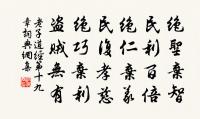 絕聖棄智
民利百倍
絕仁棄義
民復孝慈
絕巧棄利
盜賊無有
老子道經第十九
章詞典網集